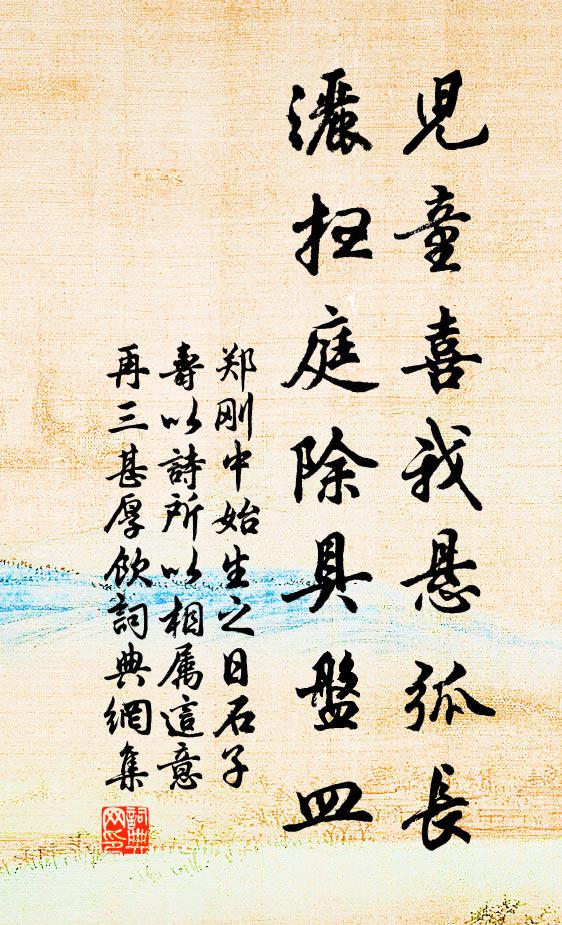 兒童喜我悬弧長
灑扫庭除具盤皿
郑刚中始生之日石子
壽以詩所以相属這意
再三甚厚飲詞典網集